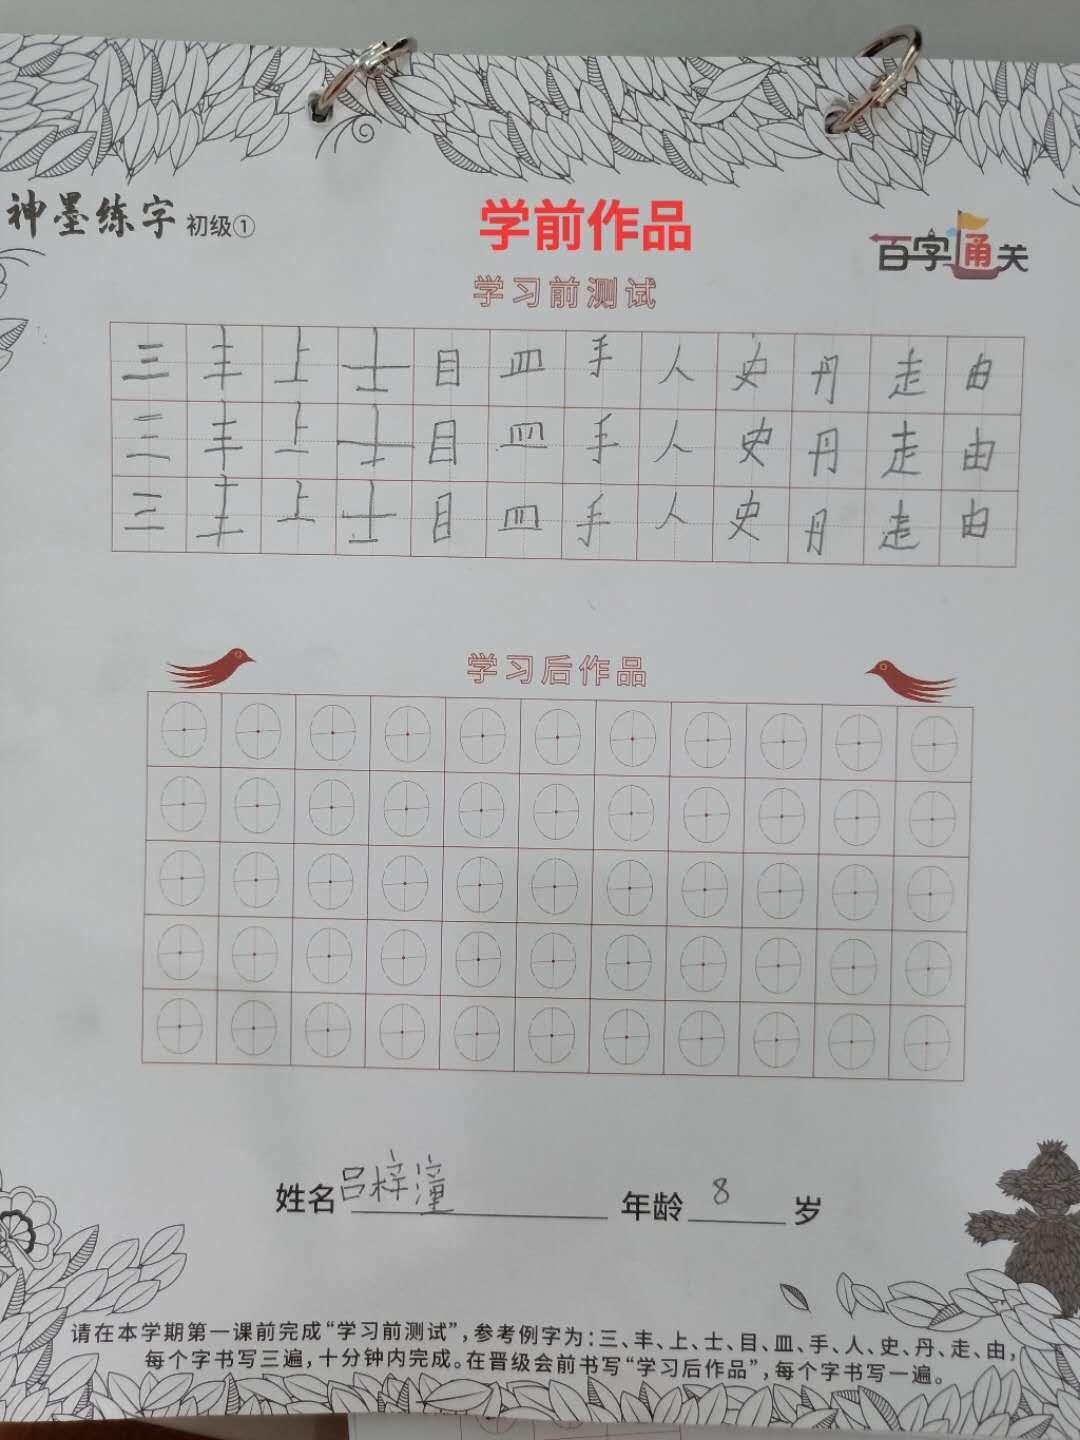 神墨练字 初级①
学前作品
百字通关
学习前测试
三丰上士目皿手人史丹走由
三丰上士目皿手人史丹走由
三丰上士目皿手人史丹走由
学习后作品
姓名 吕梓潼 年龄 8 岁
请在本学期第一课前完成“学习前测试”,参考例字为:三、丰、上、士、目、皿、手、人、史、丹、走、由,
每个字书写三遍,十分钟内完成。在晋级会前书写“学习后作品”,每个字书写一遍。